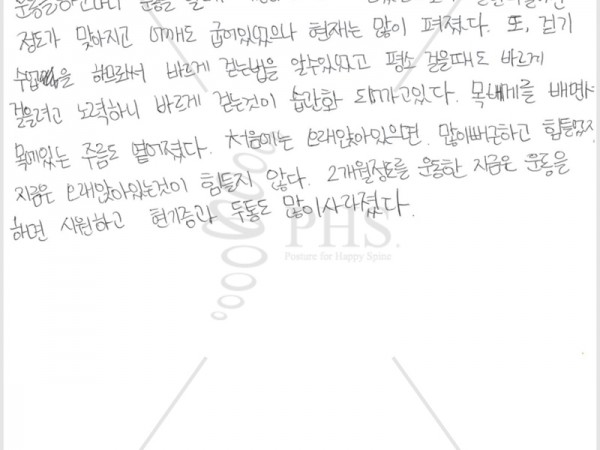 정도가 맞춰지고 어깨도 굽어있었으나 현재는 많이 펴졌다. 또, 걷기
수업을 하므로서 바르게 걷는법을 알수있었고 평소 걸을때도 바르게
걸을려고 노력하니 바르게 걷는것이 습관화 되가고있다. 목베게를 배면서
목에있는 주름도 옅어졌다. 처음에는 오래앉아있으면 많이뻐근하고 힘들었지
지금은 오래앉아있는것이 힘들지 않다. 2개월정도를 운동한 지금은 운동을
하면 시원하고 현기증과 두통도 많이사라졌다.
PHS.
Posture for Happy Spine